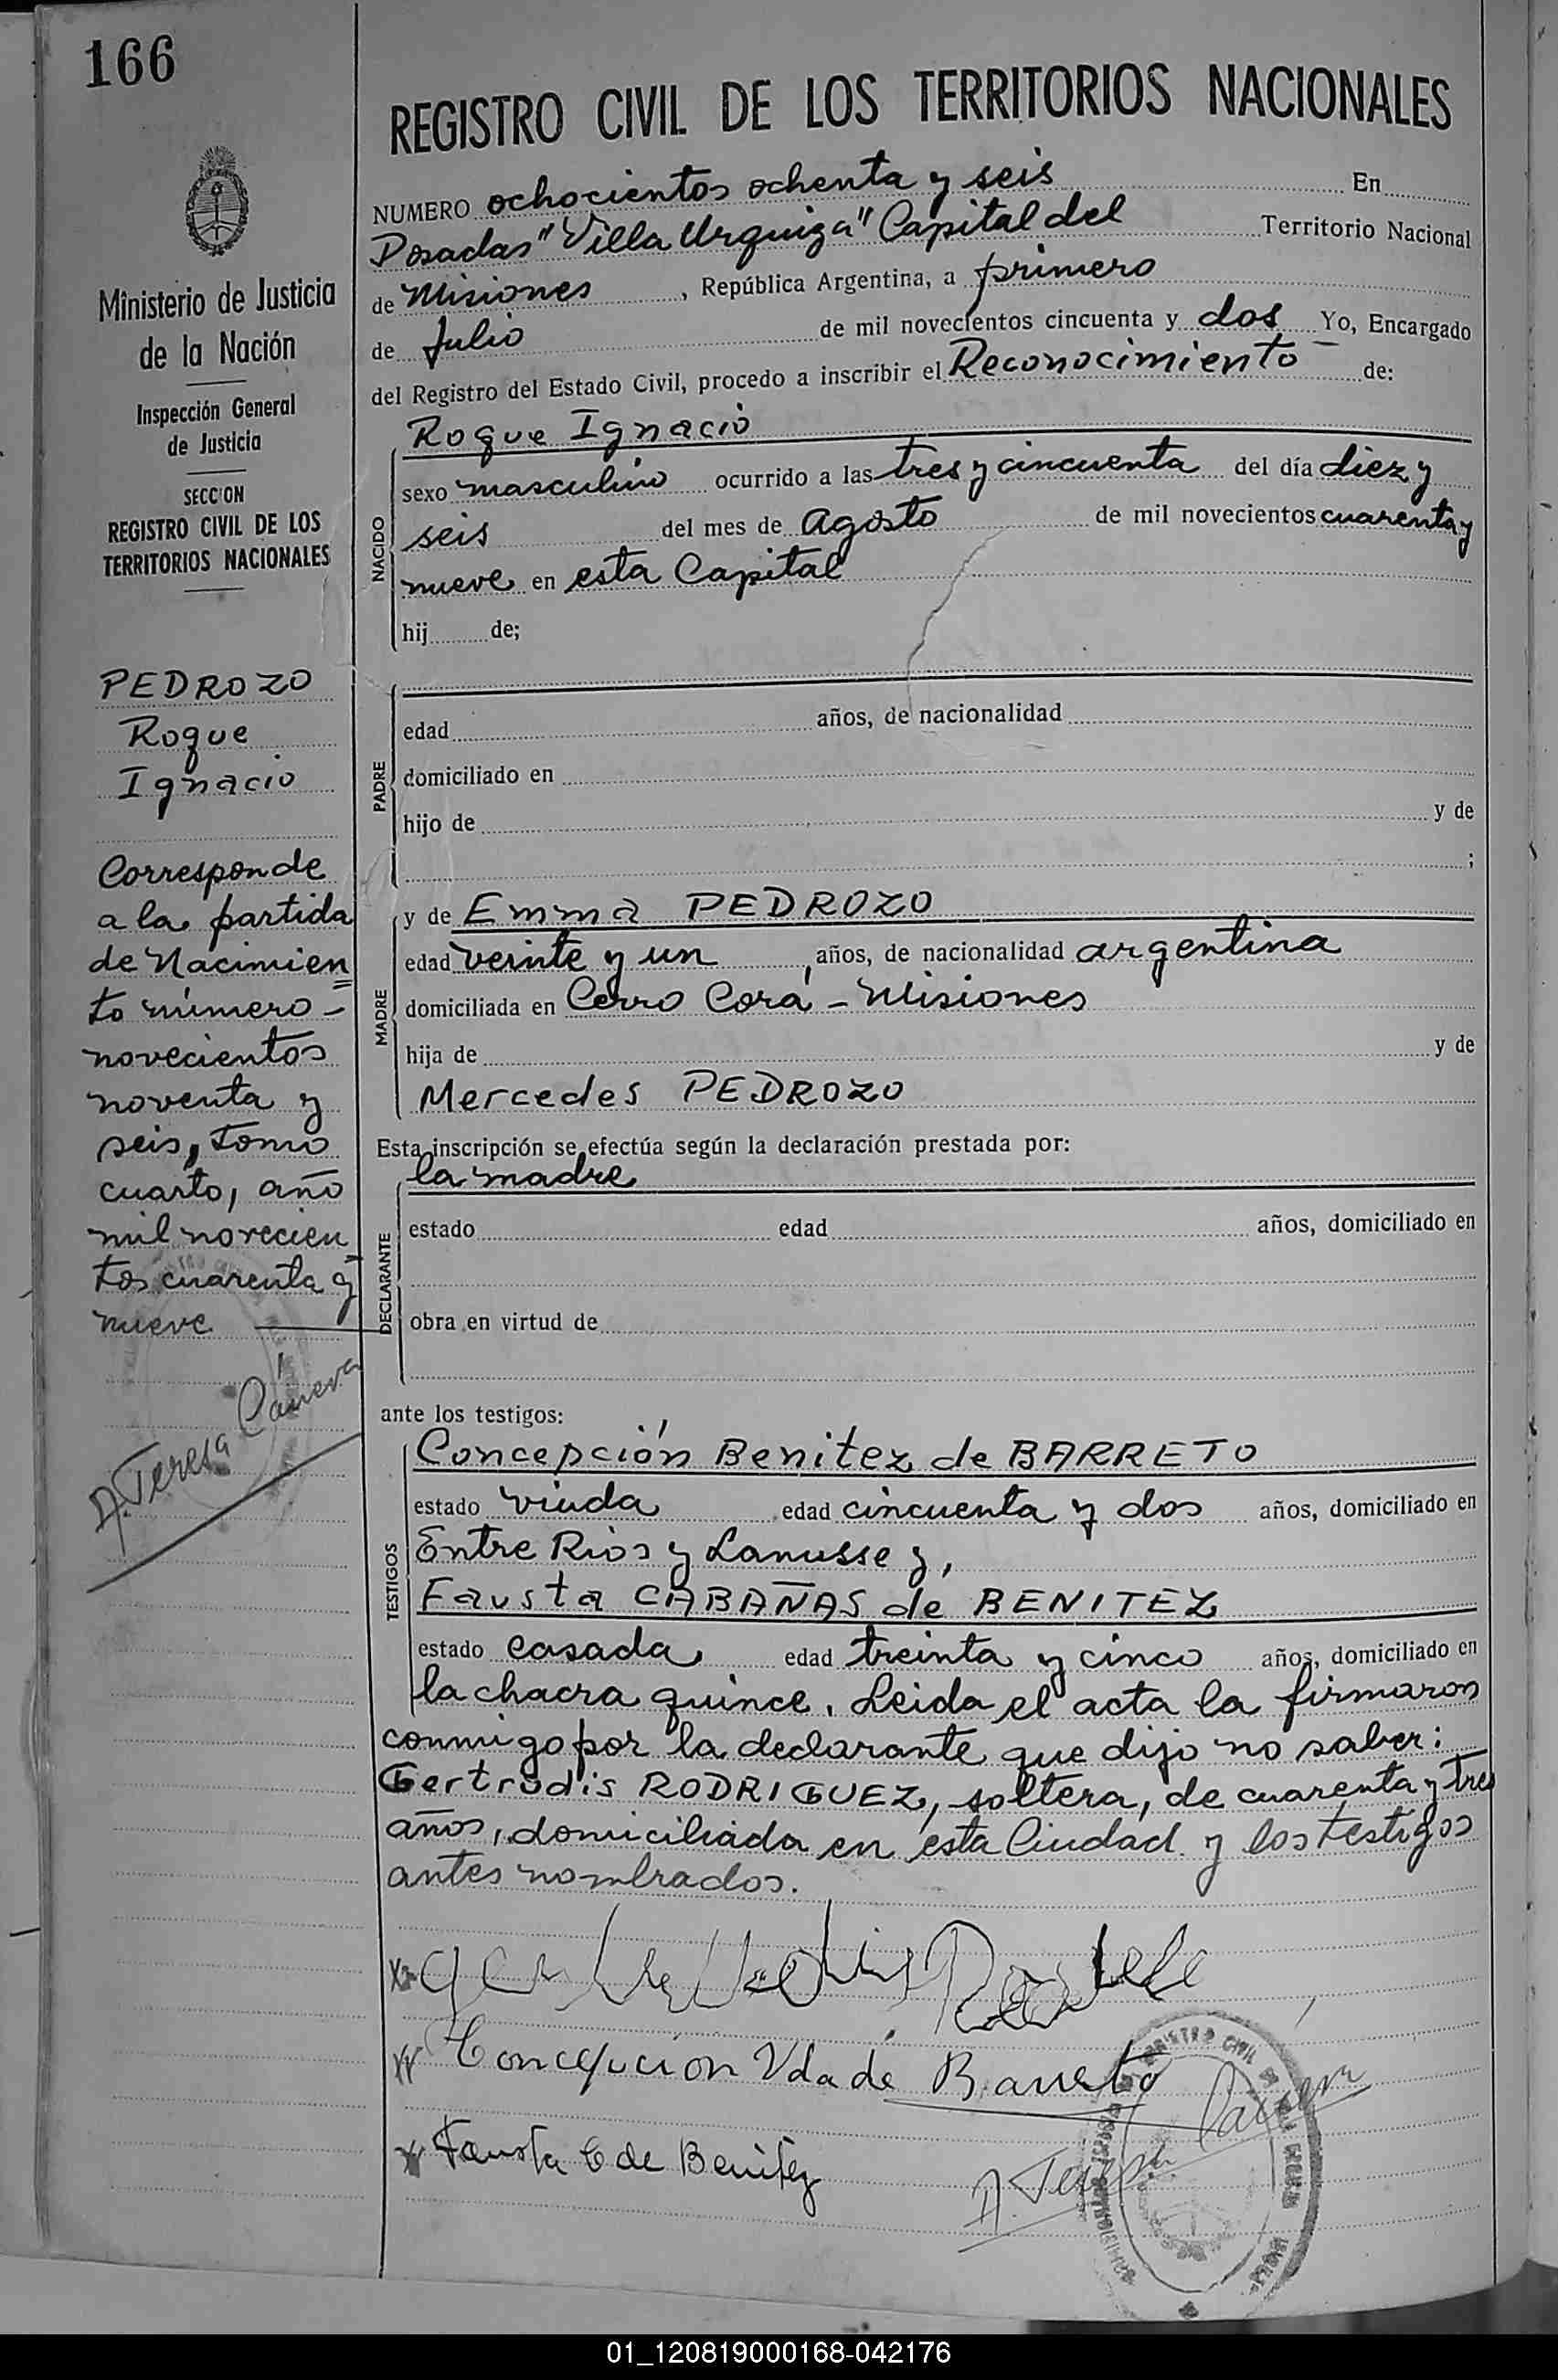 166
Ministerio de Justicia
de la Nación
Inspección General
de Justicia
SECCION
REGISTRO CIVIL DE LOS
TERRITORIOS NACIONALES
PEDROZO
Roque
Ignacio
Corresponde
a la partida
de Nacimien
to número -
novecientos
noventa y
seis, tomo
cuarto, año
mil novecien
tos cuarenta y
nueve
A. Teresa Cáneva
REGISTRO CIVIL DE LOS TERRITORIOS NACIONALES
NUMERO ochocientos ochenta y seis En
Posadas "Villa Urquiza" Capital del Territorio Nacional
de Misiones, República Argentina, a primero
de Julio de mil novecientos cincuenta y dos Yo, Encargado
del Registro del Estado Civil, procedo a inscribir el Reconocimiento de:
Roque Ignacio
NACIDO
sexo masculino ocurrido a las tres y cincuenta del día diez y
seis del mes de Agosto de mil novecientos cuarenta y
nueve en esta Capital
hij de;
PADRE
edad años, de nacionalidad
domiciliado en
hijo de y de
;
MADRE
y de Emma PEDROZO
edad veinte y un años, de nacionalidad argentina
domiciliada en Cerro Corá - Misiones
hija de y de
Mercedes PEDROZO
Esta inscripción se efectúa según la declaración prestada por:
DECLARANTE
la madre
estado edad años, domiciliado en
obra en virtud de
ante los testigos:
TESTIGOS
Concepción Benitez de BARRETO
estado viuda edad cincuenta y dos años, domiciliado en
Entre Rios y Lanusse y,
Fausta CABAÑAS de BENITEZ
estado casada edad treinta y cinco años, domiciliado en
la chacra quince. Leida el acta la firmaron
conmigo por la declarante que dijo no saber:
Gertrudis RODRIGUEZ, soltera, de cuarenta y tres
años, domiciliada en esta Ciudad y los testigos
antes nombrados.
Concepcion Vda de Barreto
Fausta C de Benitez
A. Teresa Cáneva
REGISTRO CIVIL DE
01_120819000168-042176